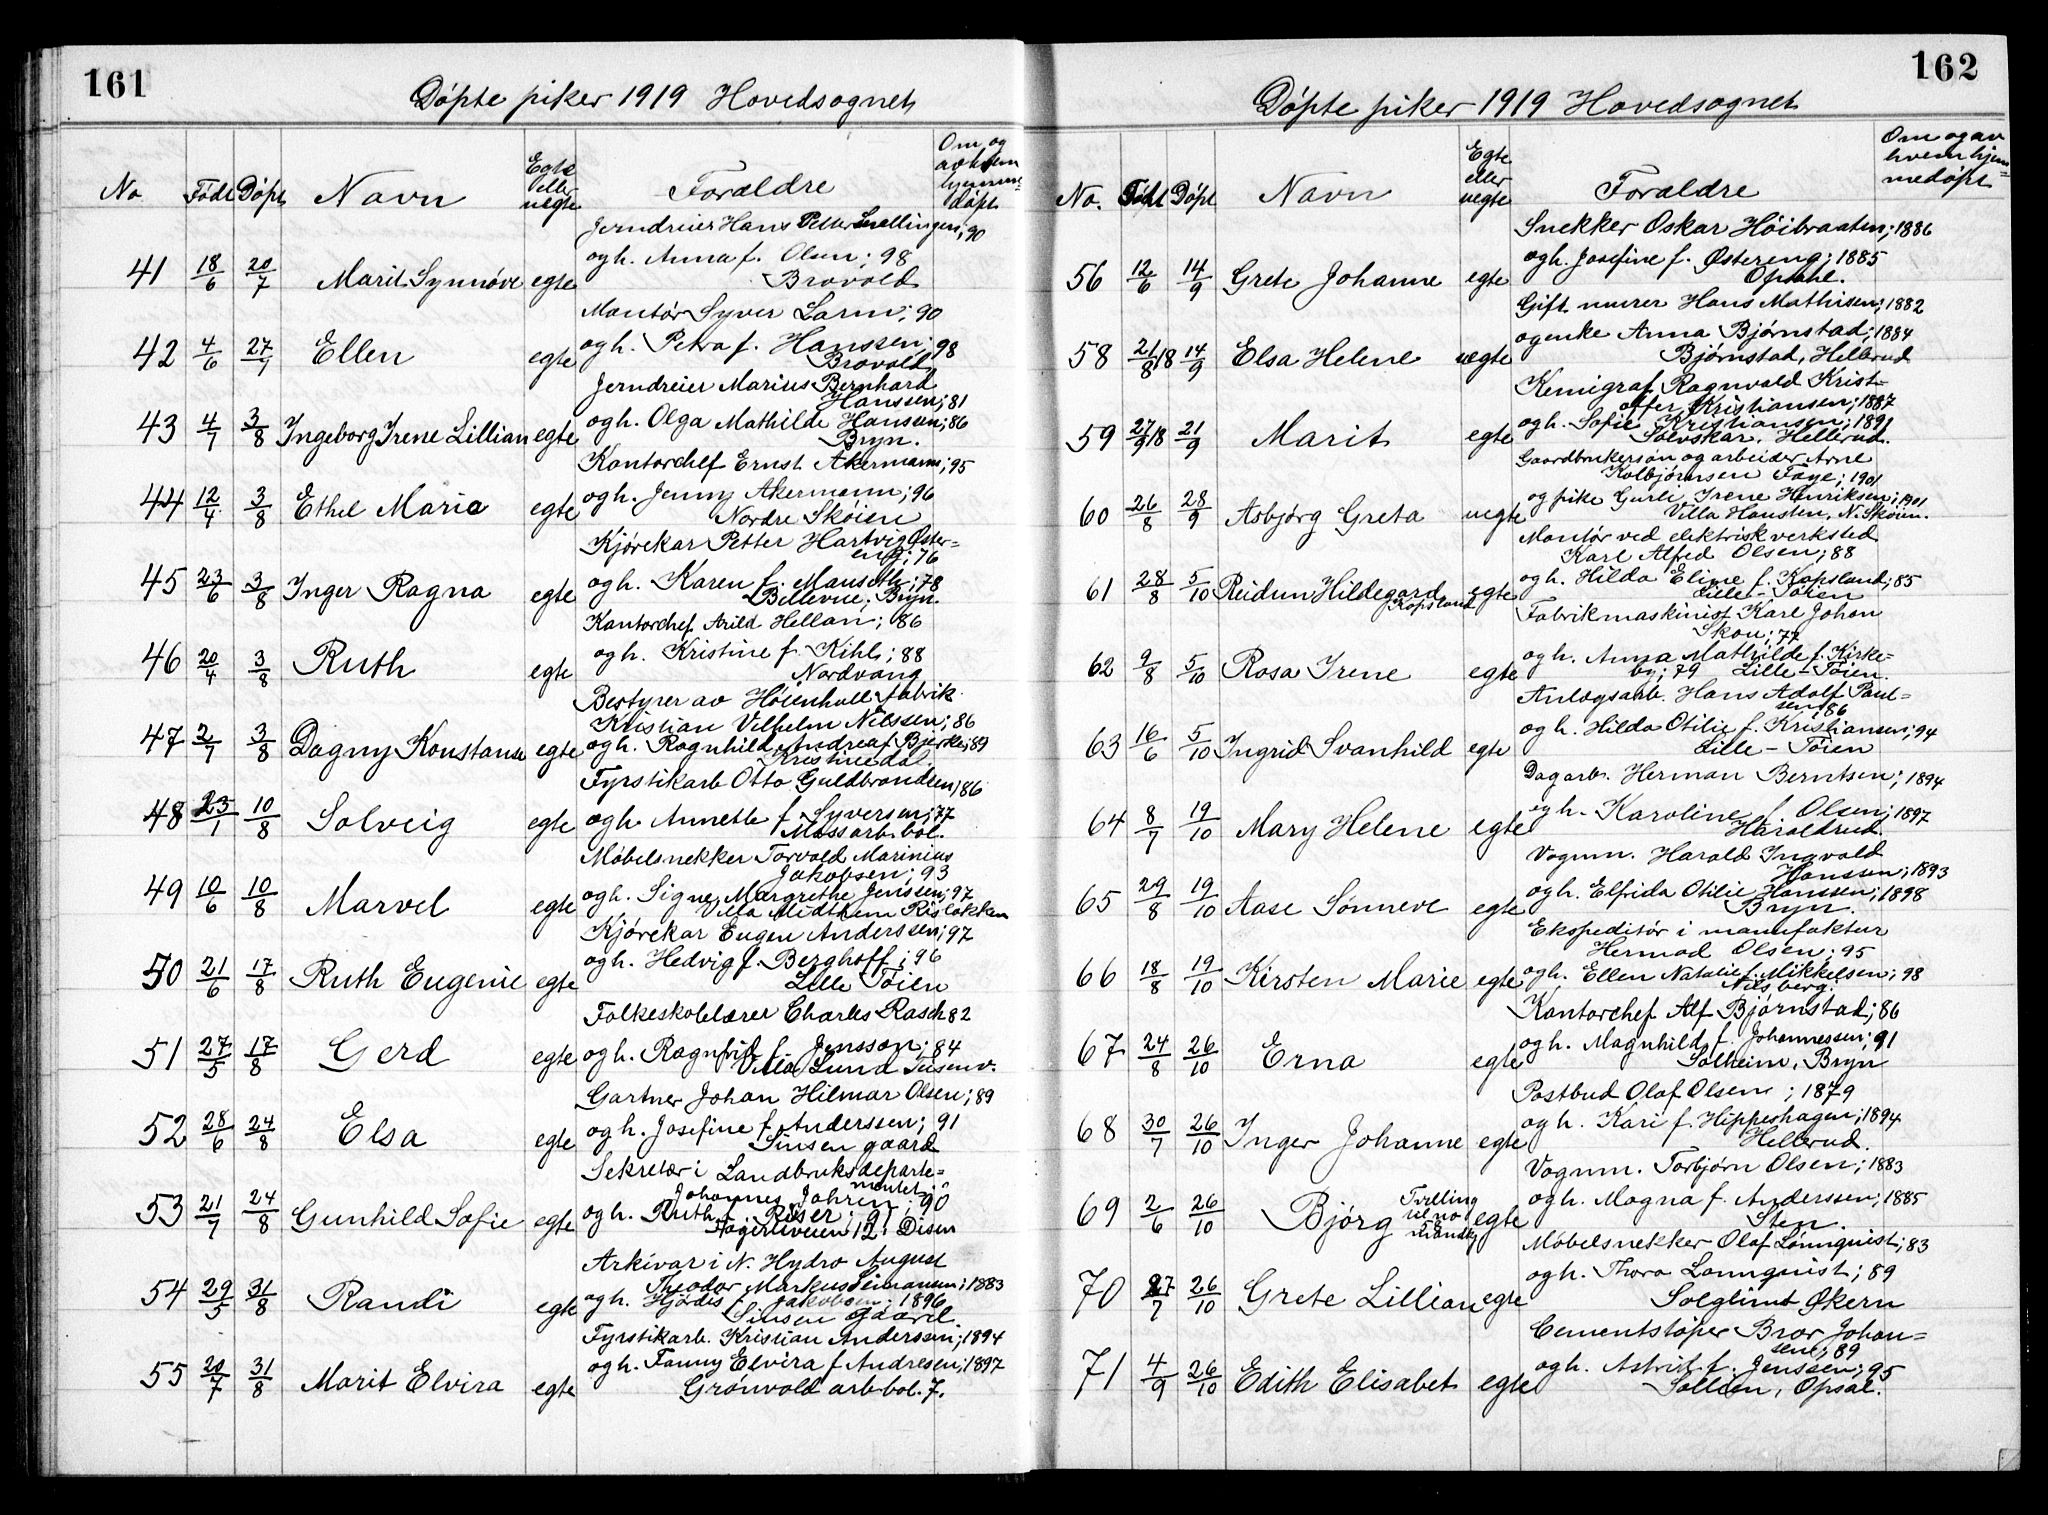 161
Døpte piker 1919 Hovedsognet
No Født Døpt Navn Egte eller uegte Forældre Om og av hvem hjemmedøpt
Jerndreier Hans Petter Snellingen; 90
41 18/6 20/7 Marit Synnøve egte og h. Anna f. Olsen; 98
Brovold
Montør Syver Larm; 90
42 4/6 27/7 Ellen egte og h. Petra f. Hanssen; 98
Brovold
Jerndreier Marius Bernhard
Hanssen; 81
43 4/7 3/8 Ingeborg Irene Lillian egte og h. Olga Mathilde Hansen; 86
Bryn.
Kontorchef Ernst Akermann; 95
44 12/4 3/8 Ethel Marie egte og h. Jenny Akermann; 96
Nordre Skøien
Kjørekar Petter Hartvig Øster=
eng; 76
45 23/6 3/8 Inger Ragna egte og h. Karen f. Manseth; 78
Bellevue; Bryn.
Kontorchef Arild Hellan; 86
46 20/4 3/8 Ruth egte og h. Kristine f. Kihl; 88
Nordvang
Bestyrer av Høienhall fabrik
Kristian Vilhelm Nilssen; 86
47 2/7 3/8 Dagny Konstanse egte og h. Ragnhild Andrea f. Bjerke; 89
Kristinedal.
Fyrstikarb Otto Guldbrandsen; 86
48 23/1 10/8 Solveig egte og h. Annette f. Syversen; 77
arb. bol.
Møbelsnekker Torvald Marinius
Jakobsen; 93
49 10/6 10/8 Marvel egte og h. Signe Margrethe Jenssen; 97
Villa Midthem Risløkken
Kjørekar Eugen Anderssen; 97
50 21/6 17/8 Ruth Eugenie egte og h. Hedvig f. Berghoff; 96
Lille Tøien
Folkeskolelærer Charles Rasch 82
51 27/5 17/8 Gerd egte og h. Ragnfrid f. Jensson; 84
Villa Lund
Gartner Johan Hilmar Olsen; 89
52 28/6 24/8 Elsa egte og h. Josefine f. Anderssen; 91
Sinsen gaard
Sekretær i Landbruksdeparte=
mentet
Johannes Jahren; 90
53 21/7 24/8 Gunhild Sofie egte og h. Ruth f. Riiser; 91
Fagerliveien 12, Disen
Arkivar i N. Hydro August
Theodor Markus Simonsen; 1883
54 29/5 31/8 Randi egte og h. Hjødis f. Jakobsen; 1896
Sinsen gaard.
Fyrstikarb. Kristian Anderssen; 1894
55 20/7 31/8 Marit Elvira egte og h. Fanny Elvira f. Andresen; 1897
Grønvold arb. bol. 7.
162
Døpte piker 1919 Hovedsognet
No. Født Døpt Navn Egte eller uegte Forældre Om og av hvem hjem=medøpt
Snekker Oskar Høibraaten; 1886
56 12/6 14/9 Grete Johanne egte og h. Josefine f. Østereng; 1885
Opsahl.
Gift murer Hans Mathisen; 1882
58 21/8 18 14/9 Elsa Helene uegte og enke Anna Bjørnstad; 1884
Bjørnstad, Hellerud
Kemigraf Ragnvald Krist=
offer Kristiansen; 1887
59 27/9 18 21/9 Marit egte og h. Sofie Kristiansen; 1891
Solvskar, Hellerud.
Gaardbrukersøn og arbeider Arne
Kolbjørnsen Faye; 1901
60 26/8 28/9 Asbjørg Greta uegte og pike Gurli Irene Henriksen; 1901
Villa Hansten, N. Skøien.
Montør ved elektrisk verksted
Karl Alfred Olsen; 88
61 28/8 5/10 Reidun Hildegard Kopsland egte og h. Hilda Eline f. Kopsland; 85
Lille-Tøien
Fabrikmaskinist Karl Johan
Skou; 77
62 9/8 5/10 Rosa Irene egte og h. Anna Mathilde f. Kirke=
by; 79 Lille-Tøien.
Anlægsarb. Hans Adolf Paul=
sen; 86
63 16/6 5/10 Ingrid Svanhild egte og h. Hilda Otilie f. Kristiansen; 94
Lille-Tøien
Dagarb. Herman Berntsen; 1894
64 8/7 19/10 Mary Helene egte og h. Karoline f. Olsen; 1897
Haraldrud.
Vognm. Harald Ingvald
Hanssen; 1893
65 29/8 19/10 Aase Sønneve egte og h. Elfrida Otilie Hanssen; 1898
Bryn.
Ekspeditør i manufaktur
Hermod Olsen; 95
66 18/8 19/10 Kirsten Marie egte og h. Ellen Natalie f. Mikkelsen; 98
Nilsberg.
Kontorchef Alf Bjørnstad; 86
67 24/8 26/10 Erna egte og h. Magnhild f. Johannessen; 91
Solheim, Bryn
Postbud Olaf Olsen; 1879
68 30/7 26/10 Inger Johanne egte og h. Kari f. Hippeshagen; 1894
Hellerud.
Vognm. Torbjørn Olsen; 1883
69 2/6 26/10 Bjørg Tvilling til no 58 mandkj. egte og h. Magna f. Anderssen; 1885
Sten.
Møbelsnekker Olaf Lønnquist; 83
70 27/7 26/10 Grete Lillian egte og h. Thora Lønnquist; 89
Solglimt, Økern
Cementstøper Bror Johan=
sen; 89
71 4/9 26/10 Edith Elisabet egte og h. Astrid f. Jenssen; 95
Sollien, Opsal.